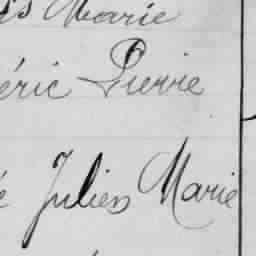 is Marie
éric Pierre
é Julien Marie